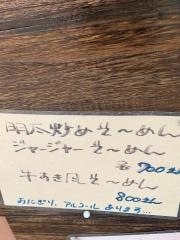 明太炒めそ〜めん
ジャージャーそ〜めん
各700えん
牛すき風そ〜めん
800えん
おにぎり、アルコールあります…